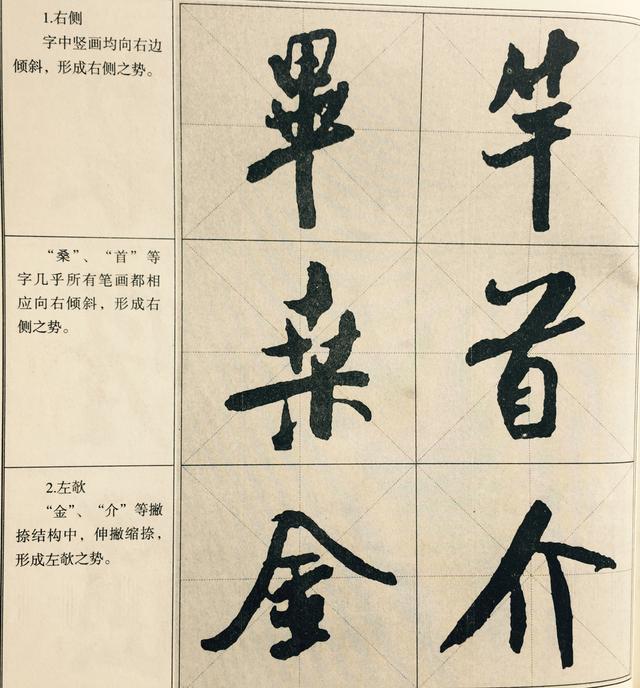 1.右侧
字中竖画均向右边
倾斜，形成右侧之势。
畢 竿
“桑”、“首”等
字几乎所有笔画都相
应向右倾斜，形成右
侧之势。
桒 首
2.左欹
“金”、“介”等撇
捺结构中，伸撇缩捺，
形成左欹之势。
金 介